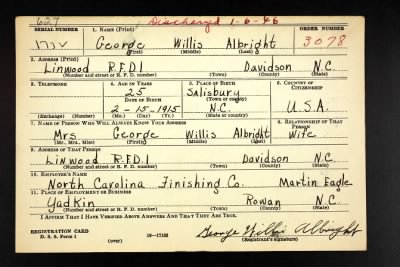 627 Discharged 1-6-46
SERIAL NUMBER 1. NAME (Print) ORDER NUMBER
George Willis Albright 3078
(First) (Middle) (Last)
2. ADDRESS (Print)
Linwood R.F.D.1 Davidson N.C.
(Number and street or R. F. D. number) (Town) (County) (State)
3. TELEPHONE 4. AGE IN YEARS 5. PLACE OF BIRTH 6. COUNTRY OF CITIZENSHIP
25 Salisbury
DATE OF BIRTH (Town or county)
2-15-1915 N.C. U.S.A.
(Exchange) (Number) (Mo.) (Day) (Yr.) (State or country)
7. NAME OF PERSON WHO WILL ALWAYS KNOW YOUR ADDRESS 8. RELATIONSHIP OF THAT PERSON
Mrs George Willis Albright Wife
(Mr., Mrs., Miss) (First) (Middle) (Last)
9. ADDRESS OF THAT PERSON
Linwood R.F.D.1 Davidson N.C.
(Number and street or R. F. D. number) (Town) (County) (State)
10. EMPLOYER'S NAME
North Carolina Finishing Co. Martin Eagle
11. PLACE OF EMPLOYMENT OR BUSINESS
Yadkin Rowan N.C.
(Number and street or R. F. D. number) (Town) (County) (State)
I AFFIRM THAT I HAVE VERIFIED ABOVE ANSWERS AND THAT THEY ARE TRUE.
REGISTRATION CARD
D. S. S. Form 1 16-17105 George Willis Albright
(over) (Registrant's signature)